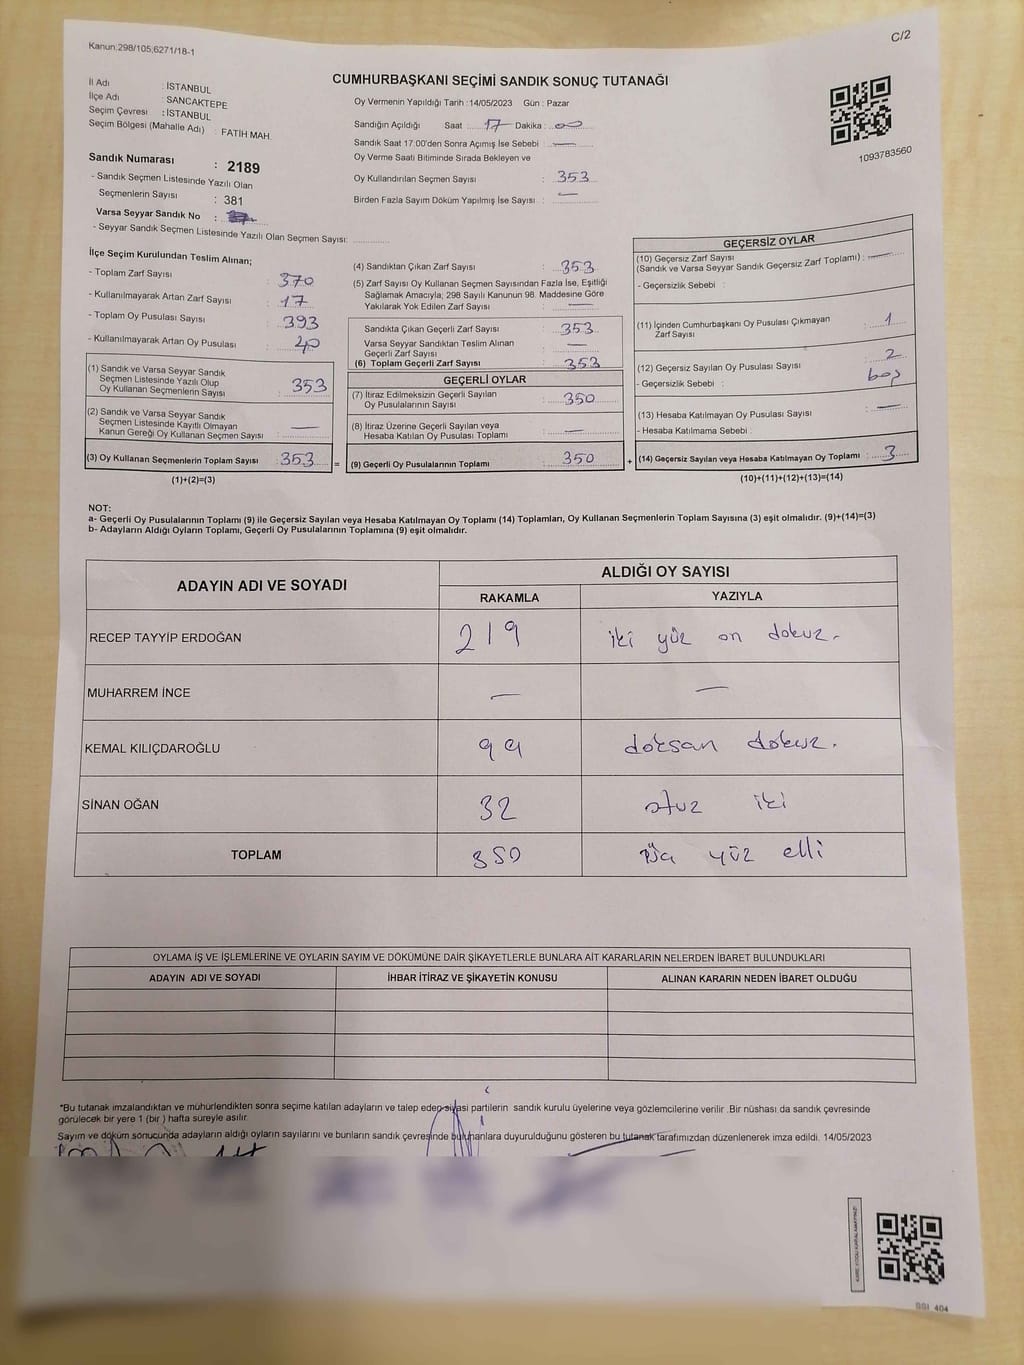 Kanun:298/105;6271/18-1
C/2
CUMHURBAŞKANI SEÇİMİ SANDIK SONUÇ TUTANAĞI
İl Adı : İSTANBUL
İlçe Adı : SANCAKTEPE
Seçim Çevresi : İSTANBUL
Seçim Bölgesi (Mahalle Adı) : FATİH MAH.
Sandık Numarası : 2189
- Sandık Seçmen Listesinde Yazılı Olan
Seçmenlerin Sayısı : 381
Varsa Seyyar Sandık No :
- Seyyar Sandık Seçmen Listesinde Yazılı Olan Seçmen Sayısı:
Oy Vermenin Yapıldığı Tarih :14/05/2023 Gün : Pazar
Sandığın Açıldığı Saat : 17 Dakika : 00
Sandık Saat 17:00'den Sonra Açımış İse Sebebi : —
Oy Verme Saati Bitiminde Sırada Bekleyen ve
Oy Kullandırılan Seçmen Sayısı : 353
Birden Fazla Sayım Döküm Yapılmış İse Sayısı : —
1093783560
İlçe Seçim Kurulundan Teslim Alınan;
- Toplam Zarf Sayısı : 370
- Kullanılmayarak Artan Zarf Sayısı : 17
- Toplam Oy Pusulası Sayısı : 393
- Kullanılmayarak Artan Oy Pusulası : 40
(1) Sandık ve Varsa Seyyar Sandık
Seçmen Listesinde Yazılı Olup
Oy Kullanan Seçmenlerin Sayısı : 353
(2) Sandık ve Varsa Seyyar Sandık
Seçmen Listesinde Kayıtlı Olmayan
Kanun Gereği Oy Kullanan Seçmen Sayısı : —
(3) Oy Kullanan Seçmenlerin Toplam Sayısı : 353 =
(1)+(2)=(3)
(4) Sandıktan Çıkan Zarf Sayısı : 353
(5) Zarf Sayısı Oy Kullanan Seçmen Sayısından Fazla İse, Eşitliği
Sağlamak Amacıyla; 298 Sayılı Kanunun 98. Maddesine Göre
Yakılarak Yok Edilen Zarf Sayısı : —
Sandıkta Çıkan Geçerli Zarf Sayısı : 353
Varsa Seyyar Sandıktan Teslim Alınan
Geçerli Zarf Sayısı : —
(6) Toplam Geçerli Zarf Sayısı : 353
GEÇERLİ OYLAR
(7) İtiraz Edilmeksizin Geçerli Sayılan
Oy Pusulalarının Sayısı : 350
(8) İtiraz Üzerine Geçerli Sayılan veya
Hesaba Katılan Oy Pusulası Toplamı : —
(9) Geçerli Oy Pusulalarının Toplamı : 350 +
GEÇERSİZ OYLAR
(10) Geçersiz Zarf Sayısı
(Sandık ve Varsa Seyyar Sandık Geçersiz Zarf Toplamı) : —
- Geçersizlik Sebebi :
(11) İçinden Cumhurbaşkanı Oy Pusulası Çıkmayan
Zarf Sayısı : 1
(12) Geçersiz Sayılan Oy Pusulası Sayısı : 2
- Geçersizlik Sebebi : boş
(13) Hesaba Katılmayan Oy Pusulası Sayısı : —
- Hesaba Katılmama Sebebi :
(14) Geçersiz Sayılan veya Hesaba Katılmayan Oy Toplamı : 3
(10)+(11)+(12)+(13)=(14)
NOT:
a- Geçerli Oy Pusulalarının Toplamı (9) ile Geçersiz Sayılan veya Hesaba Katılmayan Oy Toplamı (14) Toplamları, Oy Kullanan Seçmenlerin Toplam Sayısına (3) eşit olmalıdır. (9)+(14)=(3)
b- Adayların Aldığı Oyların Toplamı, Geçerli Oy Pusulalarının Toplamına (9) eşit olmalıdır.
ADAYIN ADI VE SOYADI ALDIĞI OY SAYISI
RAKAMLA YAZIYLA
RECEP TAYYİP ERDOĞAN 219 iki yüz on dokuz.
MUHARREM İNCE — —
KEMAL KILIÇDAROĞLU 99 doksan dokuz.
SİNAN OĞAN 32 otuz iki
TOPLAM 350 üç yüz elli
OYLAMA İŞ VE İŞLEMLERİNE VE OYLARIN SAYIM VE DÖKÜMÜNE DAİR ŞİKAYETLERLE BUNLARA AİT KARARLARIN NELERDEN İBARET BULUNDUKLARI
ADAYIN ADI VE SOYADI İHBAR İTİRAZ VE ŞİKAYETİN KONUSU ALINAN KARARIN NEDEN İBARET OLDUĞU
*Bu tutanak imzalandıktan ve mühürlendikten sonra seçime katılan adayların ve talep eden siyasi partilerin sandık kurulu üyelerine veya gözlemcilerine verilir .Bir nüshası da sandık çevresinde
görülecek bir yere 1 (bir ) hafta süreyle asılır.
Sayım ve döküm sonucunda adayların aldığı oyların sayılarını ve bunların sandık çevresinde bulunanlara duyurulduğunu gösteren bu tutanak tarafımızdan düzenlenerek imza edildi. 14/05/2023